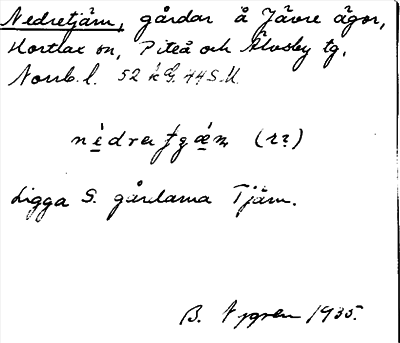 Nedretjäm, gårdar å Jävre ägor,
Hortlax sn, Piteå och Älvsby tg,
Norrb. l. 52 k G. 44 S.U.
(r?)
Ligga S. gårdarna Tjäm.
B. Nygren 1935.